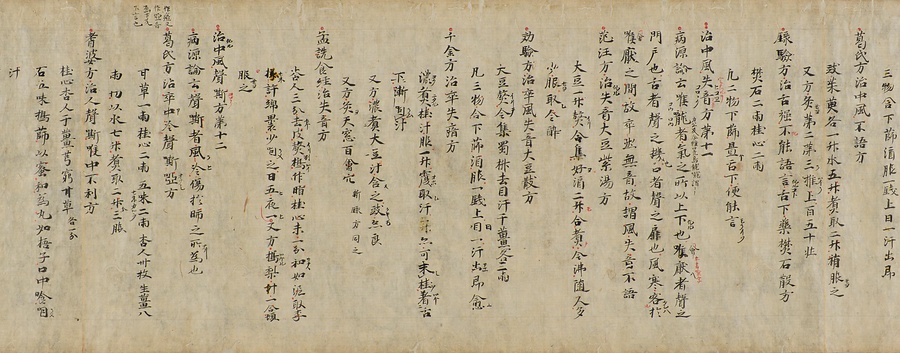 三物合下篩酒服一錢上日一汗出即
葛氏方治中風不語方
豉茱萸各一升水五升煮取二升稍服之
又方灸第二第三椎上百五十壮
録驗方治舌強不能語言舌下藥礬石散方
礬石二兩桂心二兩
凡二物下篩置舌下便能言
治中風失音方第十一
病源論云喉嚨者氣之所以上下也喉厭者聲之
門戶也舌者聲之機口者聲之扇也風寒客於
喉厭之間故卒然無音故謂風失音不語
范汪方治失音大豆紫湯方
大豆一升熬令焦好酒二升合煮令沸随人多
少服取令醉
効驗方治卒風失音大豆散方
大豆熬令焦蜀椒去目汗干薑各三兩
凡三物合下篩酒服一錢上日一汗出即愈
千金方治卒失瘖方
濃煮桂汁服一升覆取汗亦可末桂著舌
下漸咽汁
又方濃煮大豆汁含之豉亦良
又方灸天窓百會穴 新録方同之
孟詵食経治失音方
杏人三分去皮熬搗作脂桂心末一分和如泥取李
核許綿裹少咽之日五夜一又方搗梨汁一合頓
服之
治中風聲嘶方第十二
病源論云聲嘶者風冷傷於肺之所爲也
葛氏方治卒中冷聲嘶啞方
甘草一兩桂心二兩五味二兩杏人卅枚生薑八
兩切以水七升煮取二升三服
耆婆方治人聲嘶喉中不利方
桂心杏人干薑芎窮甘草各一分
右五味搗篩以蜜和為丸如梧子口中含咽
汁